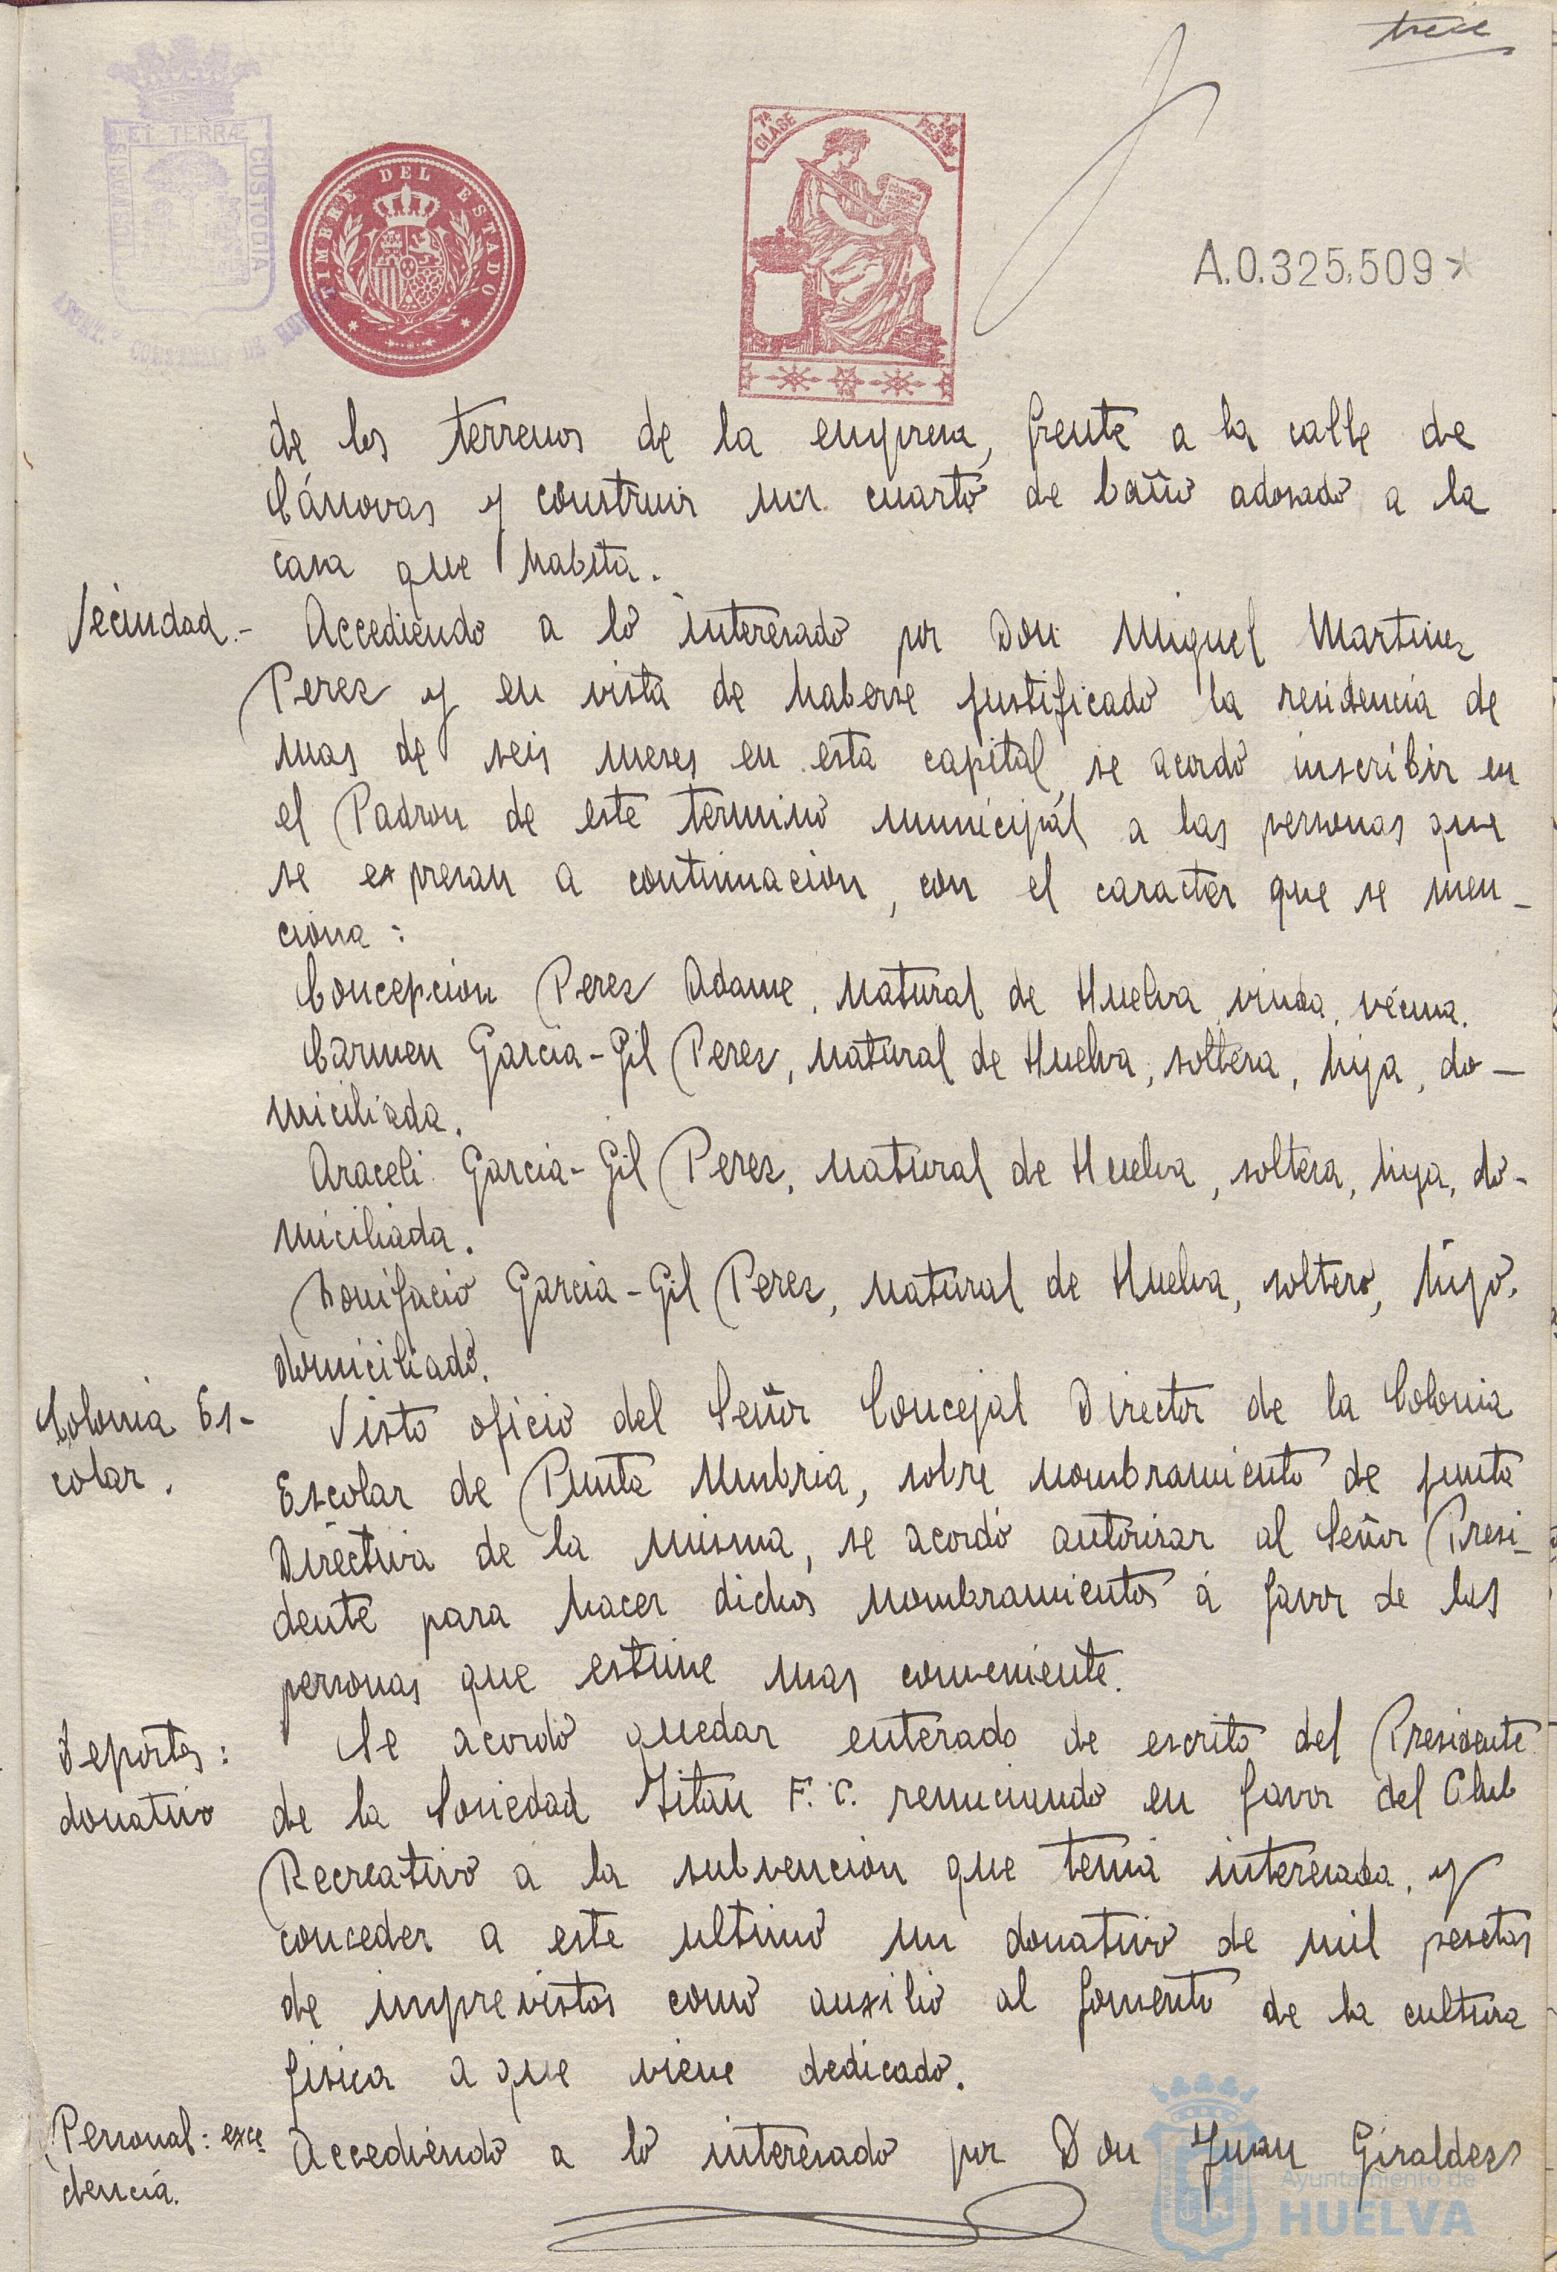 trece
PORTUS MARIS ET TERRÆ CUSTODIA
TIMBRE DEL ESTADO
7ª CLASE
A.0.325.509
de los terrenos de la empresa, frente a la calle de
Cánovas y construir un cuarto de baño adosado a la
casa que habita.
Vecindad.- Accediendo a lo interesado por Don Miguel Martinez
Perez y en vista de haberse justificado la residencia de
mas de seis meses en esta capital, se acordó inscribir en
el Padron de este termino municipal a las personas que
se expresan a continuación, con el caracter que se men-
ciona:
Concepcion Perez Adame, natural de Huelva, viuda, vécina.
Carmen Garcia-Gil Perez, natural de Huelva, soltera, hija, do-
miciliada.
Araceli Garcia-Gil Perez, natural de Huelva, soltera, hija, do-
miciliada.
Bonifacio Garcia-Gil Perez, natural de Huelva, soltero, hijo,
domiciliado.
Colonia Es- Visto oficio del Señor Concejal Director de la Colonia
colar. Escolar de Punta Umbria, sobre nombramiento de junta
Directiva de la misma, se acordó autorizar al Señor Presi-
dente para hacer dichos nombramientos á favor de las
personas que estime mas conveniente.
Deportes: Se acordó quedar enterado de escrito del Presidente
donativo de la Sociedad Titan F. C. renunciando en favor del Club
Recreativo a la subvención que tenia interesada, y
conceder a este ultimo un donativo de mil pesetas
de imprevistos como auxilio al fomento de la cultura
fisica a que viene dedicado.
Personal: exce Accediendo a lo interesado por Don Juan Giraldez
dencia.
Ayuntamiento de
HUELVA